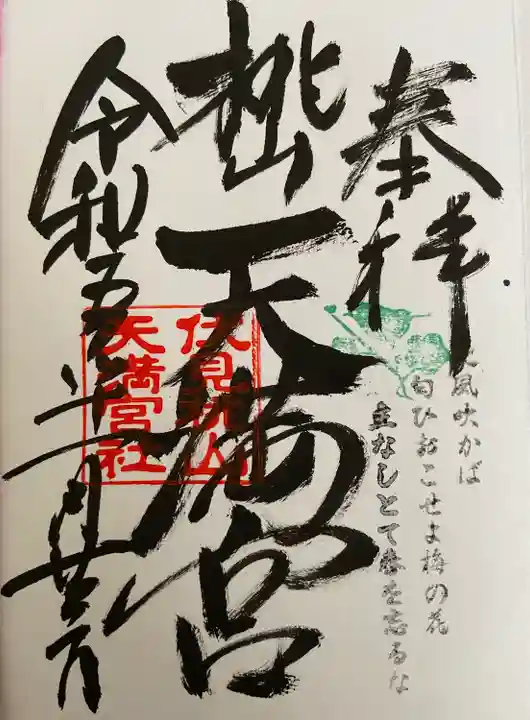 奉拝
東風吹かば
匂ひおこせよ梅の花
主なしとて春を忘るな
桃山天満宮
伏見桃山
天満宮社
令和五年